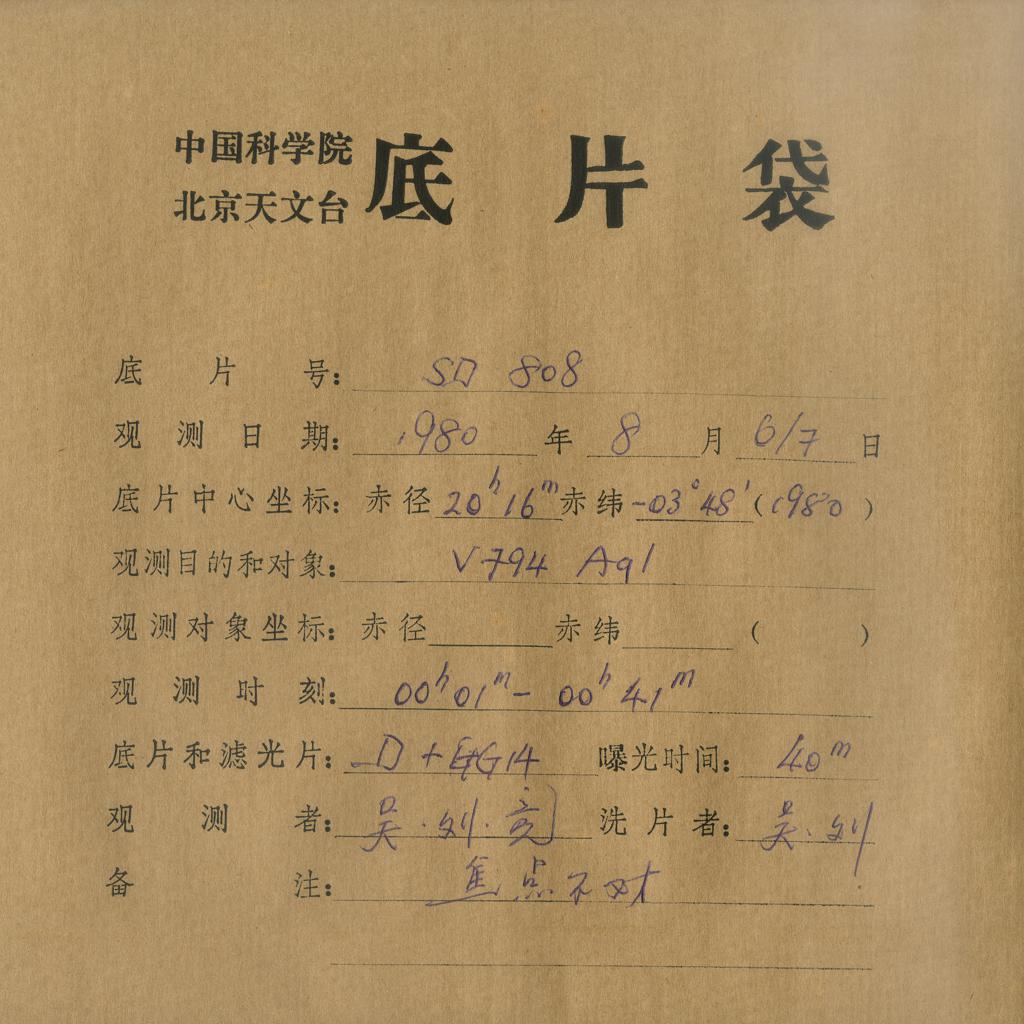 中国科学院
北京天文台
底片袋
底片号: SD 808
观测日期: 1980 年 8 月 6/7 日
底片中心坐标: 赤径 20ʰ16ᵐ 赤纬 -03°48' (1980)
观测目的和对象: V794 Aql
观测对象坐标: 赤径 赤纬 ( )
观测时刻: 00ʰ01ᵐ - 00ʰ41ᵐ
底片和滤光片: D + GG14 曝光时间: 40ᵐ
观测者: 吴·刘· 洗片者: 吴·刘
备注: 焦点不对